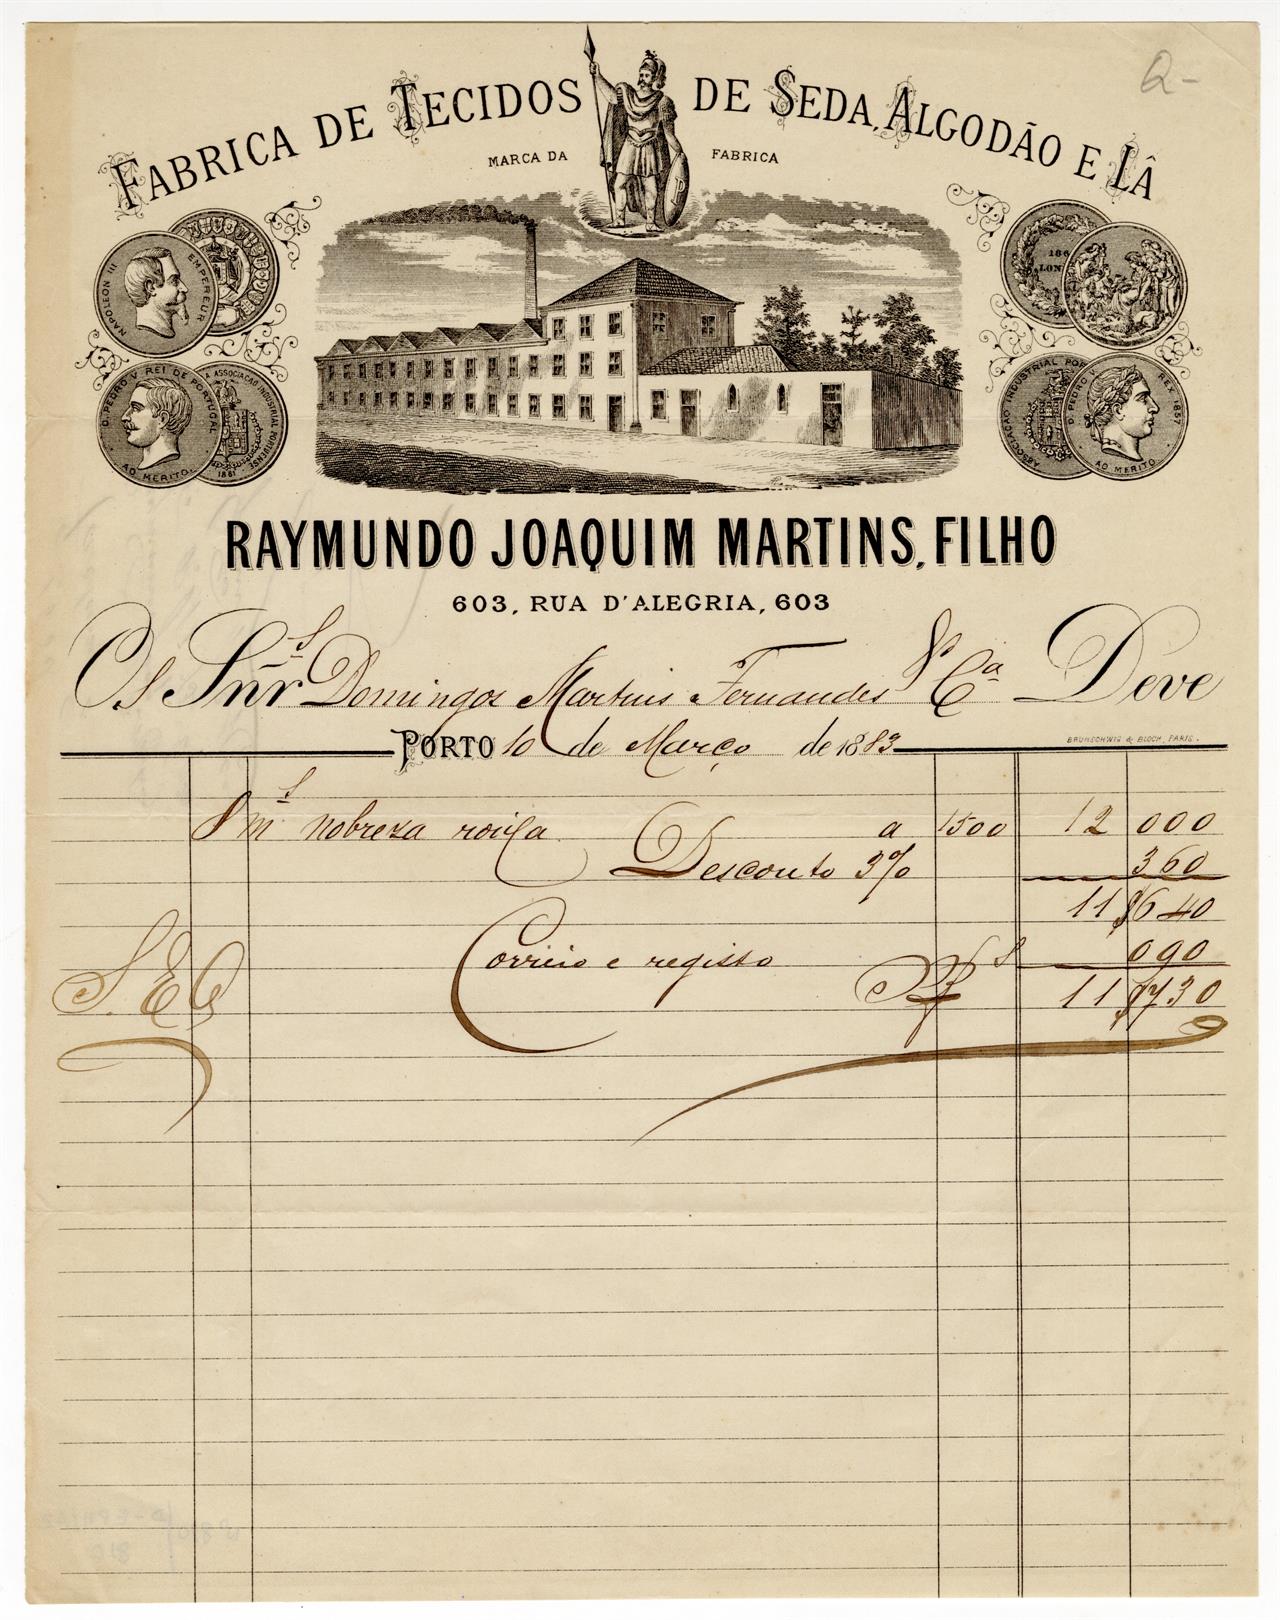 Q-
FABRICA DE TECIDOS DE SEDA, ALGODÃO E LÃ
MARCA DA FABRICA
P
NAPOLEON III EMPEREUR
D. PEDRO V REI DE PORTUGAL
AO MERITO.
A ASSOCIAÇAO INDUSTRIAL PORTUENSE
1861
186
LON
ASSOCIAÇAO INDUSTRIAL POR
D. PEDRO V. REX 1857
AO MERITO
RAYMUNDO JOAQUIM MARTINS, FILHO
603, RUA D'ALEGRIA, 603
Os Snrs. Domingos Martins Fernandes & Cª Deve
PORTO 10 de Março de 1883
BRUNSCHWIG & BLOCH, PARIS.
8 ms nobreza roixa a 1500 12 000
Desconto 3% 360
11$640
Correio e registo 090
S. E. O. Rs 11$730